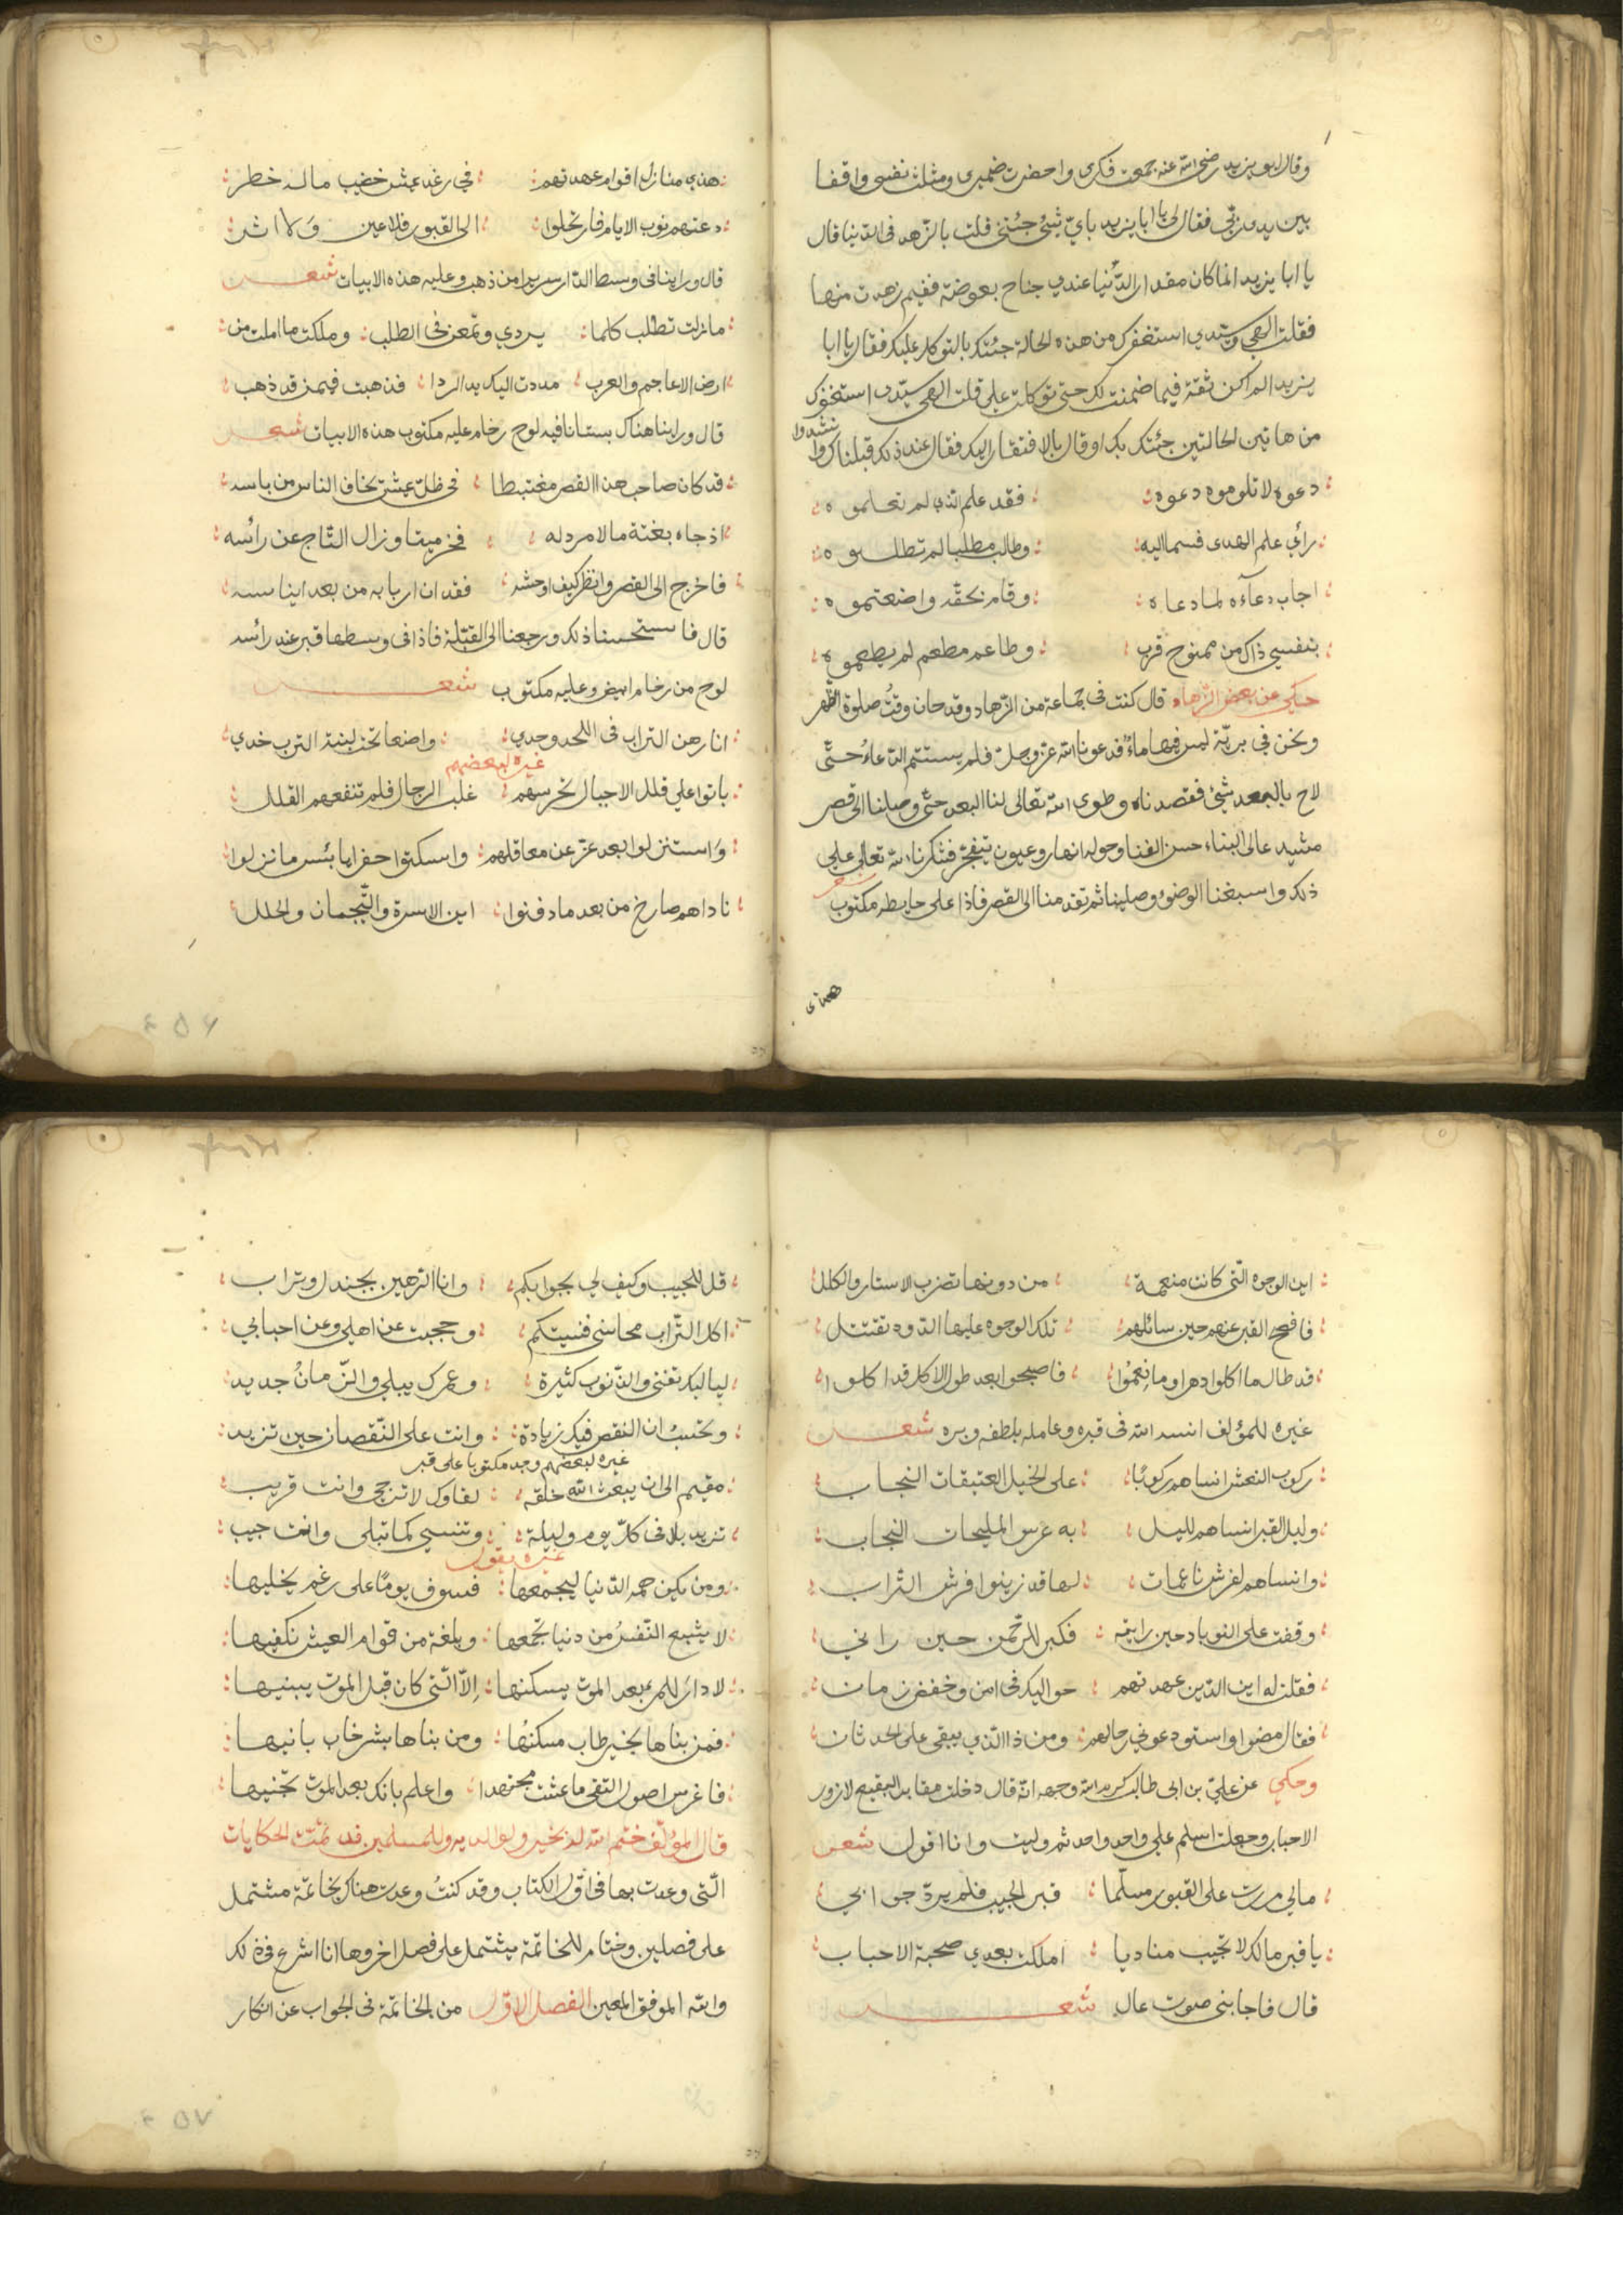 وقال ابو يزيد رضي الله عنه جمعت فكري واحضرت ضميري ومثلت نفسي واقفا
بين يدي ربي فقال لي يا ابا يزيد باي شئ جئتني قلت بالزهد في الدنيا قال
يا ابا يزيد انما كان مقدار الدنيا عندي جناح بعوضة ففيم زهدت منها
فقلت الهي وسيدي استغفرك من هذه الحالة جئتك بالتوكل عليك فقال يا ابا
يزيد الم اكن ثقة فيما ضمنت لك حتى توكلت علي قلت الهي سيدي استغفرك
من هاتين الحالتين جئتك بك او قال بالافتقار اليك فقال عند ذلك قبلناك
دعوه لا تلوموه دعوه فقد علم الذي لم تعلموه
راي علم الهدى فسما اليه وطالب مطلبا لم تطلبوه
اجاب دعآءه لما دعاه وقام بحقه واضعتموه
بنفسي ذاك من ممنوح قرب وطاعم مطعم لم يطعموه
حكي عن بعض الزهاد قال كنت في جماعة من الزهاد وقد حان وقت صلوة الظهر
ونحن في برية ليس فيها ماء فدعونا الله عز وجل فلم يستتم الدعاء حتى
لاح بالبعد شئ فقصدناه وطوى الله تعالى لنا البعد حتى وصلنا الى قصر
مشيد عالى البناء حسن الفنا وحوله انهار وعيون تتفجر فشكرنا الله تعالى على
ذلك واسبغنا الوضو وصلينا ثم تقدمنا الى القصر فاذا على حايطه مكتوب شعر
هذي
هذي منازل اقوام عهدتهم في رغد عيش خضيب ماله خطر
دعتهم نوب الايام فارتحلوا الى القبور فلا عين ولا اثر
قال وراينا في وسط الدار سريرا من ذهب وعليه هذه الابيات شعر
مازلت تطلب كلما يردي وتمعن في الطلب وملكت ما املت من
ارض الاعاجم والعرب مددت اليك يد الردا فذهبت فيمن قد ذهب
قال وراينا هناك بستانا فيه لوح رخام عليه مكتوب هذه الابيات شعر
قد كان صاحب هذا القصر مغتبطا في ظل عيش تخاف الناس من باسه
اذ جاء بغتة ما لا مرد له فخر ميتا وزال التاج عن راسه
فاخرج الى القصر وانظر كيف اوحشه فقدان اربابه من بعد ايناسه
قال فاستحسنا ذلك ورجعنا الى القبلة فاذا في وسطها قبر عند راسه
لوح من رخام ابيض وعليه مكتوب شعر
انا رهن التراب في اللحد وحدي واضعا تحت لبنة الترب خدي
غيره لبعضهم
باتوا على قلل الاجبال تحرسهم غلب الرجال فلم تنفعهم القلل
واستنزلوا بعد عز عن معاقلهم واسكنوا حفرا يا بئس ما نزلوا
ناداهم صارخ من بعد ما دفنوا اين الاسرة والتيجان والحلل
٤٥٦
اين الوجوه التي كانت منعمة من دونها تضرب الاستار والكلل
فافصح القبر عنهم حين سائلهم تلك الوجوه عليها الدود تقتتل
قد طال ما اكلوا دهرا وما نعموا فاصبحوا بعد طول الاكل قد اكلوا
غيره للمؤلف انسه الله في قبره وعامله بلطفه وبره شعر
ركوب النعش انساهم ركوبا على الخيل العتيقات النجاب
وليل القبر انساهم لليل به عرس المليحات النجاب
وانساهم لفرش ناعمات لها قد زينوا فرش التراب
وقفت على النوباد حين رايته فكبر للرحمن حين راني
فقلت له اين الذين عهدتهم حواليك في امن وخفض زمان
فقال مضوا واستودعوني رحالهم ومن ذا الذي يبقى على الحدثان
وحكي عن علي بن ابى طالب كرم الله وجهه انه قال دخلت مقابر البقيع لازور
الاحباب وجعلت اسلم على واحد واحد ثم وليت وانا اقول شعر
مالي مررت على القبور مسلما قبر الحبيب فلم يرد جوابي
يا قبر مالك لا تجيب مناديا امللت بعدي صحبة الاحباب
قال فاجابني صوت عال شعر
قل للحبيب وكيف لي بجوابكم وانا الرهين بجندل وتراب
اكل التراب محاسني فنسيتكم وحجبت عن اهلي وعن احبابي
لياليك تفنى والذنوب كثيرة وعمرك يبلى والزمان جديد
وتحسب ان النقص فيك زيادة وانت على النقصان حين تزيد
غيره لبعضهم وجد مكتوبا على قبر
مقيم الى ان يبعث الله خلقه لقاوك لا ترجى وانت قريب
تزيد بلا في كل يوم وليلة وتنسى كما تبلى وانت حبيب
غيره يقول
ومن يكن همه الدنيا ليجمعها فسوف يوما على رغم يخليها
لا يشبع النفس من دنيا تجمعها وبلغة من قوام العيش تكفيها
لا دار للمرء بعد الموت يسكنها الا التي كان قبل الموت يبنيها
فمن بناها بخير طاب مسكنها ومن بناها بشر خاب بانيها
فاغرس اصول التقى ما عشت مجتهدا واعلم بانك بعد الموت تجنيها
قال المؤلف ختم الله له بخير ولوالديه وللمسلمين قد تمت الحكايات
التي وعدت بها في اول الكتاب وقد كنت وعدت هناك بخاتمة مشتمل
على فصلين وختام للخاتمة يشتمل على فصل اخر وها انا اشرع في ذلك
والله الموفق المعين الفصل الاول من الخاتمة في الجواب عن انكار
٤٥٧